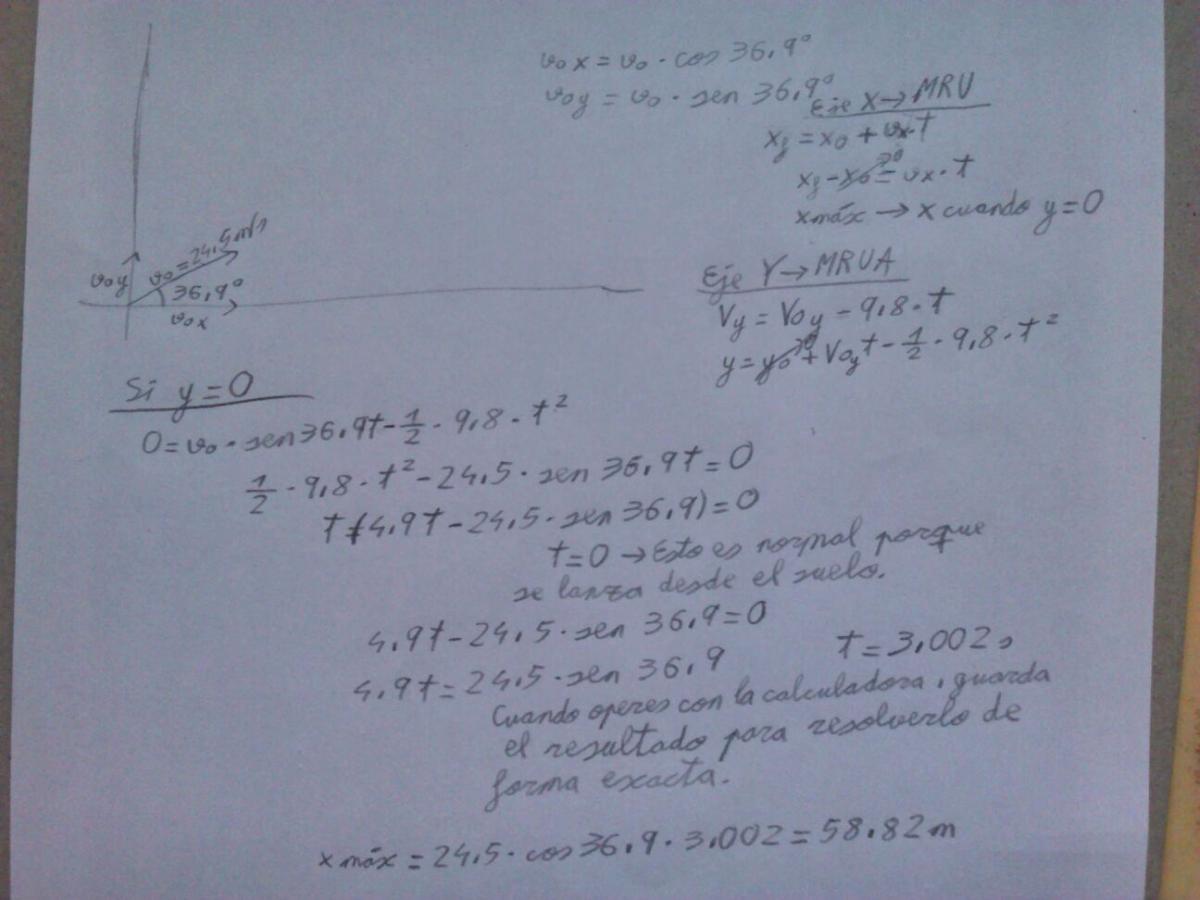 v₀x = v₀ · cos 36,9°
v₀y = v₀ · sen 36,9°
Eje X → MRU
xf = x₀ + vx·t
xf - x₀ = vx·t
x máx → x cuando y=0
v₀y
v₀ = 24,5 m/s
36,9°
v₀x
Eje Y → MRUA
Vy = V₀y - 9,8·t
y = y₀ + V₀y t - 1/2 · 9,8 · t²
Si y=0
0 = v₀ · sen 36,9t - 1/2 · 9,8 · t²
1/2 · 9,8 · t² - 24,5 · sen 36,9t = 0
t(4,9t - 24,5 · sen 36,9) = 0
t=0 → Esto es normal porque
se lanza desde el suelo.
4,9t - 24,5 · sen 36,9 = 0
4,9t = 24,5 · sen 36,9
t = 3,002 s
Cuando operes con la calculadora, guarda
el resultado para resolverlo de
forma exacta.
x máx = 24,5 · cos 36,9 · 3,002 = 58,82 m